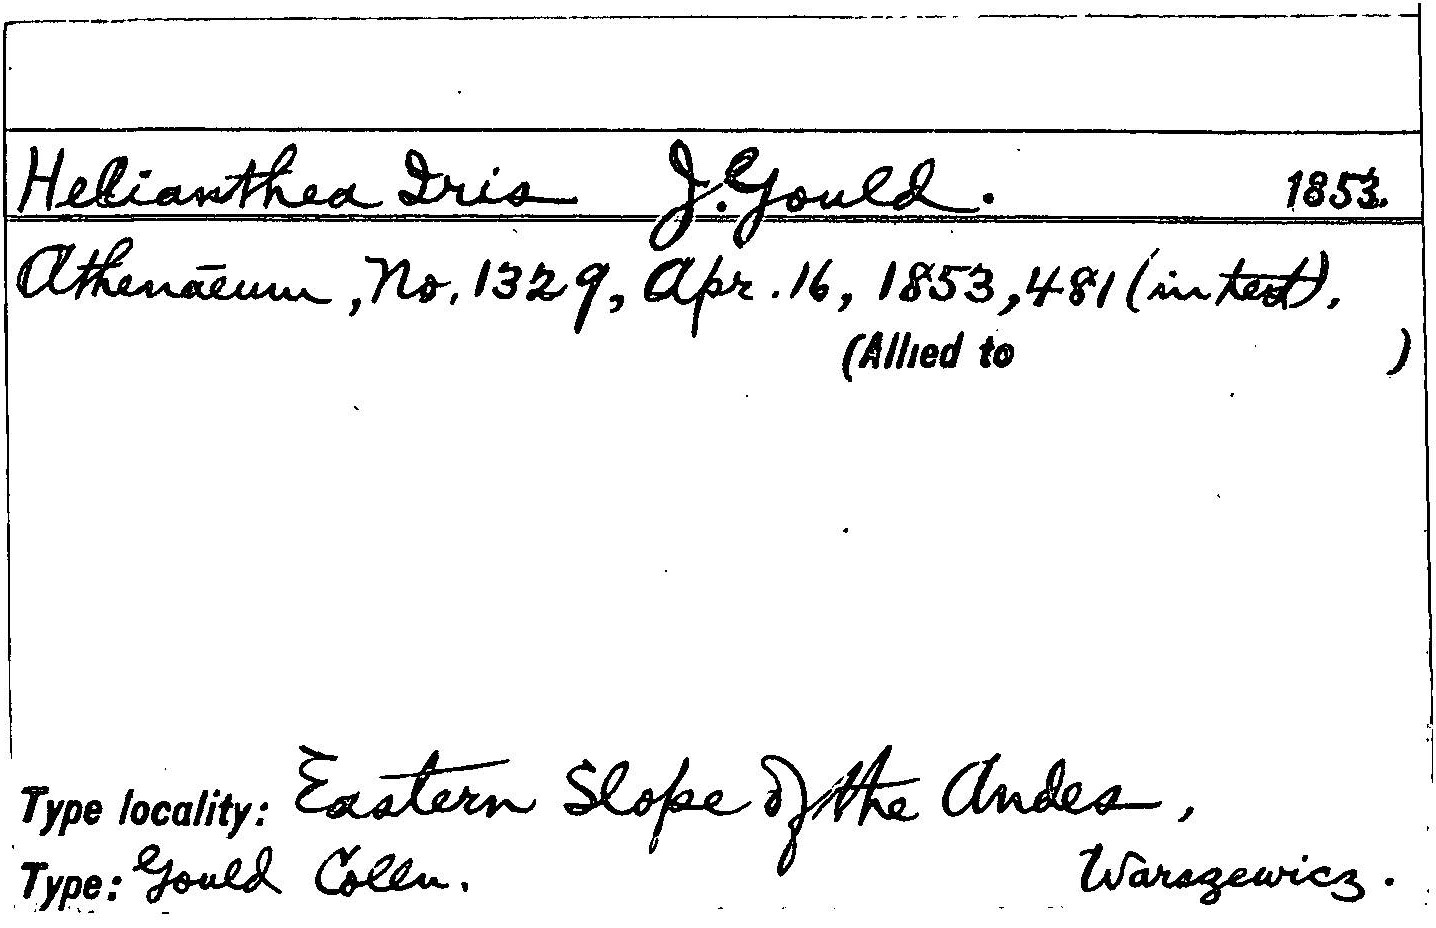 Helianthea Iris J. Gould. 1853.
Athenæum, No. 1329, Apr. 16, 1853, 481 (in text).
(Allied to )
Type locality: Eastern Slope of the Andes,
Type: Gould Colln. Warszewicz.